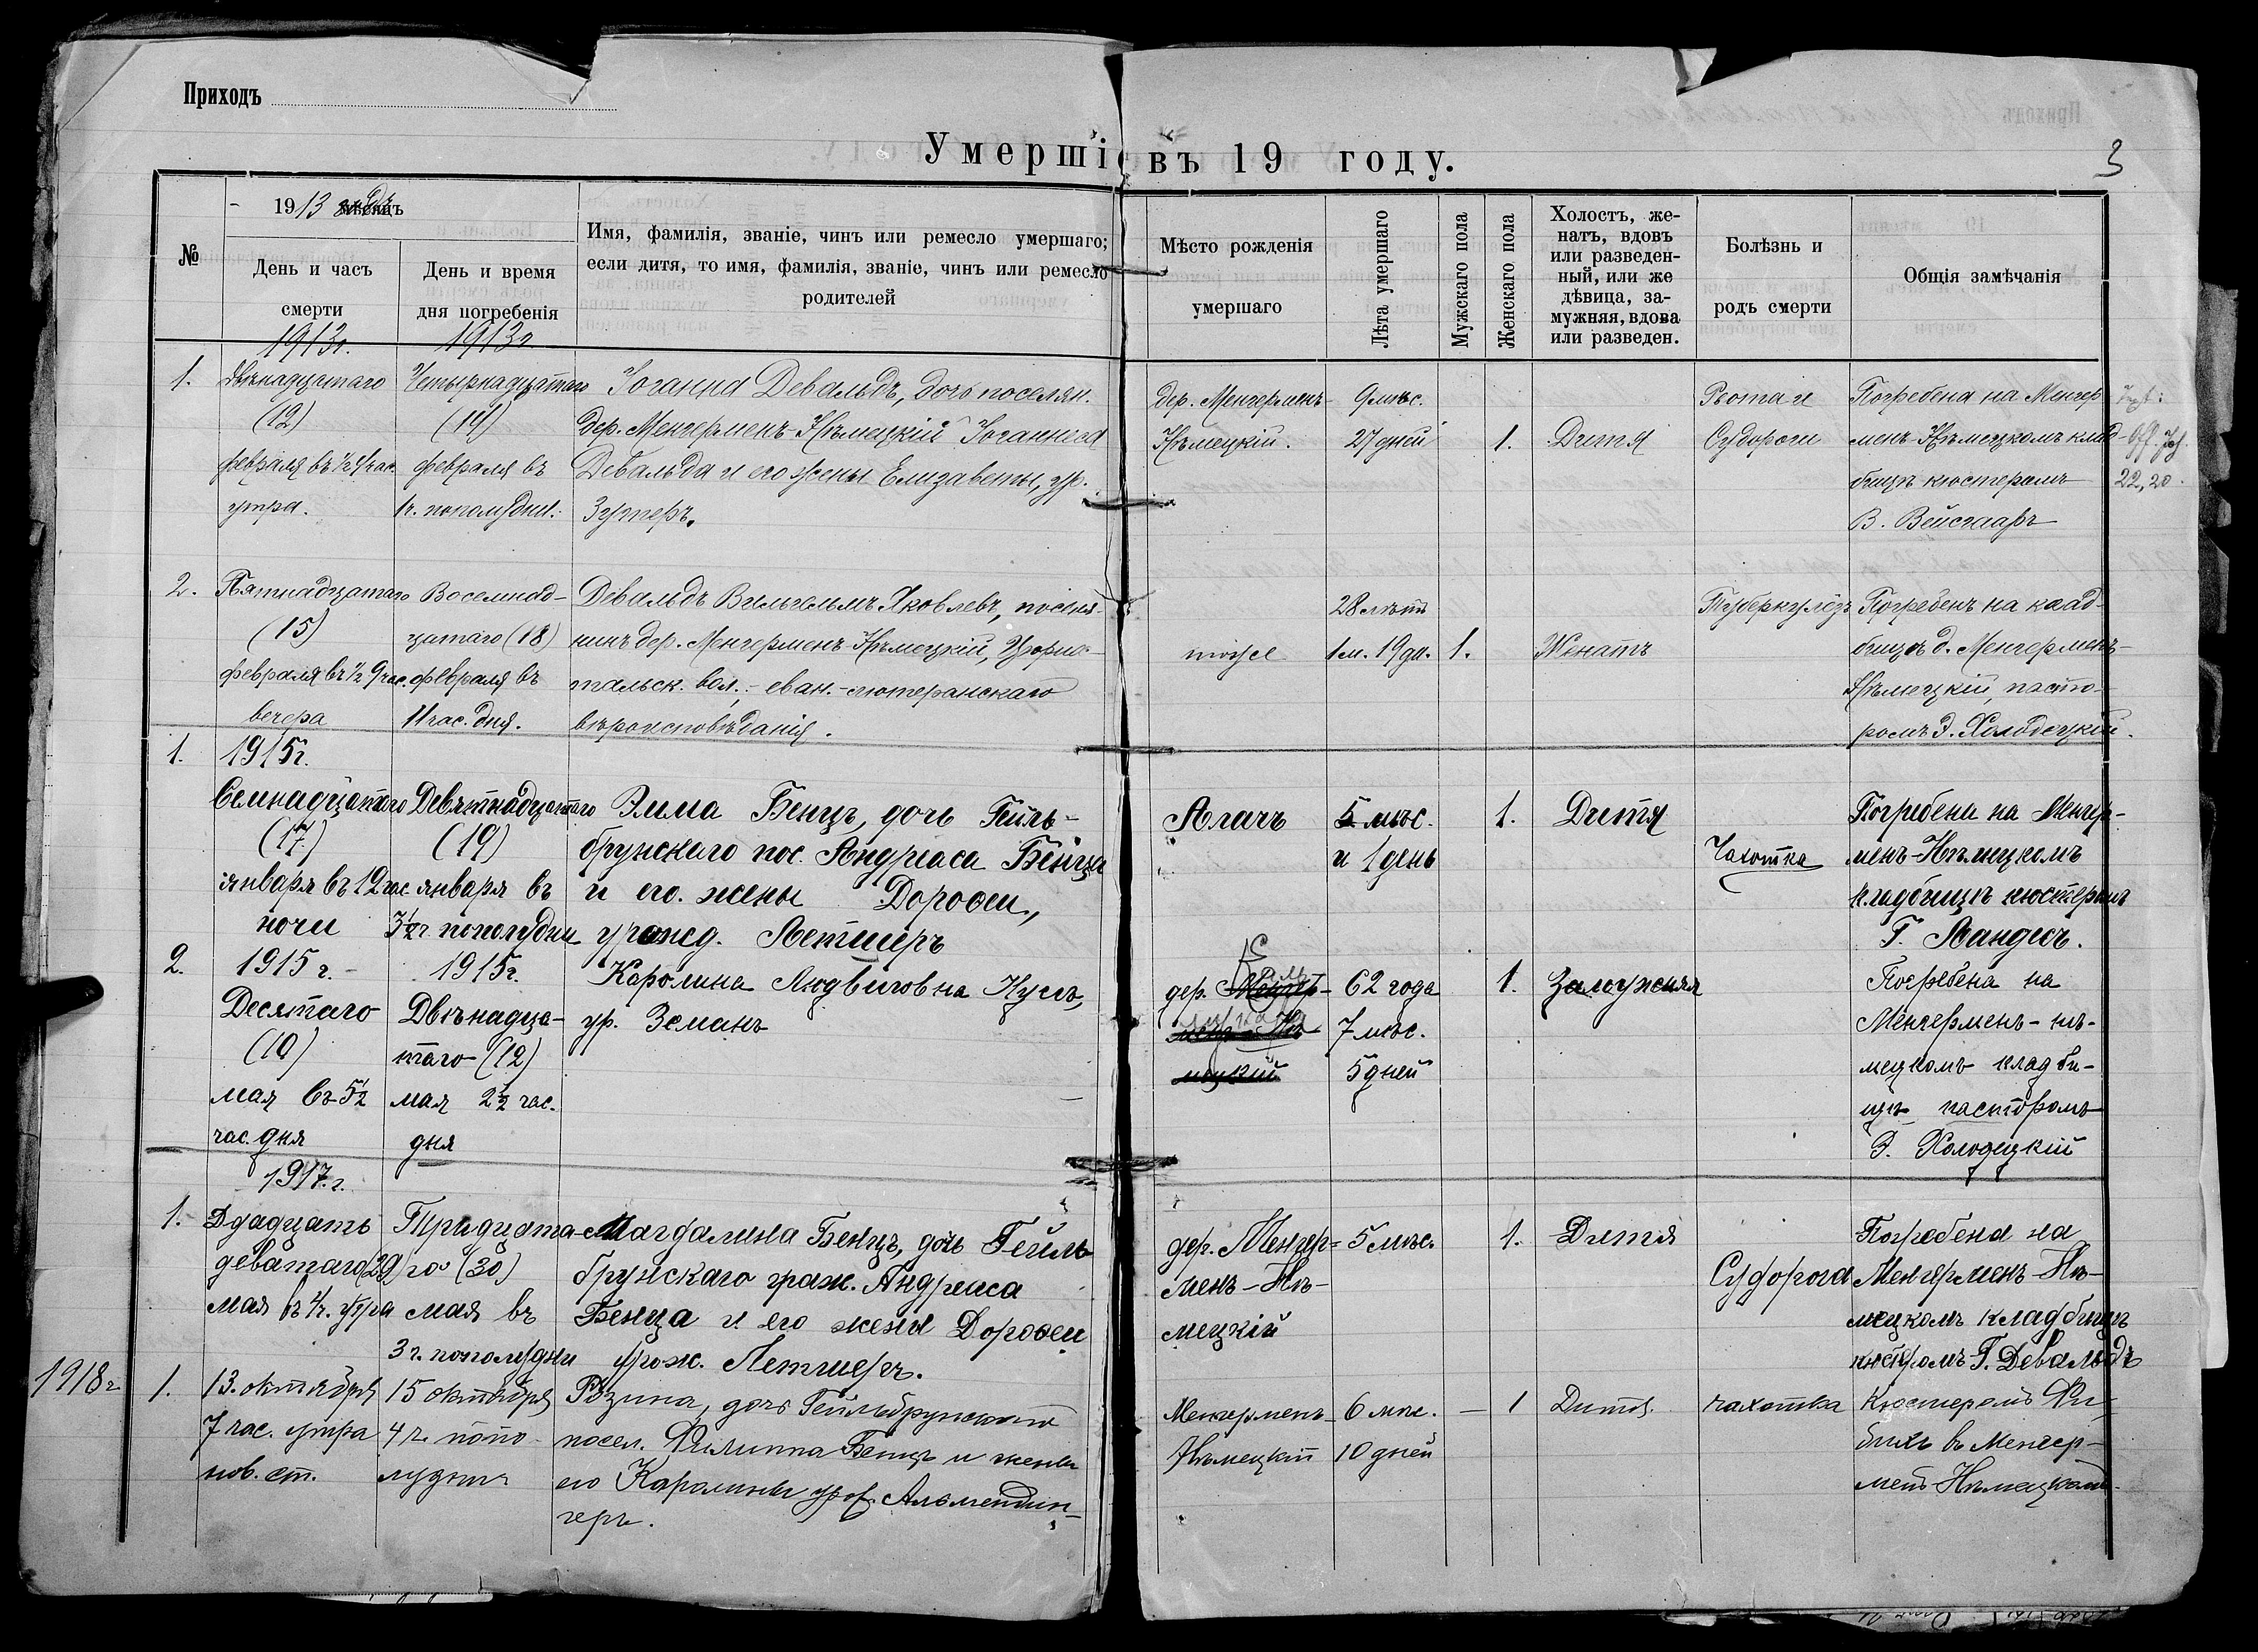 Приходъ
Умершіе въ 19 году.
3
№
1913 мѣсяцъ
День и часъ
смерти
1913г.
День и время
дня погребенія
1913г.
Имя, фамилія, званіе, чинъ или ремесло умершаго;
если дитя, то имя, фамилія, званіе, чинъ или ремесло
родителей
Мѣсто рожденія
умершаго
Лѣта умершаго
Мужскаго пола
Женскаго пола
Холостъ, же-
натъ, вдовъ
или разведен-
ный, или же
дѣвица, за-
мужняя, вдова
или разведен.
Болѣзнь и
родъ смерти
Общія замѣчанія
1.
Двѣнадцатаго
(12)
февраля въ ½ час.
утра.
Четырнадцатаго
(14)
февраля въ
1ч. пополудни.
Іоганна Девальдъ, дочь поселян.
дер. Менгерменъ-Нѣмецкій Іоганнеса
Девальда и его жены Елизаветы, ур.
Зутеръ.
дер. Менгерменъ-
Нѣмецкій.
9 мѣс.
27 дней
1.
Дитя
Рвота и
Судороги
Погребена на Менгер
менъ-Нѣмецкомъ клад-
бищѣ кюстеромъ
В. Вейсгааръ
22, 20.
2.
Пятнадцатаго
(15)
февраля въ ½ 9 час.
вечера
Восемнад-
цатаго (18)
февраля въ
11 час. дня.
Девальдъ Вильгельмъ Яковлевъ, поселя-
нинъ дер. Менгерменъ-Нѣмецкій, Цюрих-
тальск. вол. - еван.-лютеранскаго
вѣроисповѣданія.
тоже
28 лѣтъ
1 м. 19 дн.
1.
Женатъ
Туберкулёзъ
Погребенъ на клад-
бищѣ д. Менгерменъ-
Нѣмецкій, пасто-
ромъ Э. Холодецкій.
1.
1915г.
Семнадцатаго
(17)
января въ 12 час
ночи
Девятнадцатаго
(19)
января въ
3½ч пополудни
Эмма Бенцъ, дочь Гейль-
брунскаго пос. Андреаса Бенца
и его жены Дороѳеи,
урожд. Летшеръ
Алачъ
5 мѣс.
и 1 день
1.
Дитя
Чахотка
Погребена на Менгер-
менъ-Нѣмецкомъ
кладбищѣ кюстеромъ
Г. Ландесъ.
2.
1915 г.
Десятаго
(10)
мая въ 5½
час. дня
1915г.
Двѣнадца-
таго (12)
мая 2½ час.
дня
Каролина Людвиговна Кусъ,
ур. Земанъ
дер. Менгер-
менъ-Нѣ-
мецкій
62 года
7 мѣс.
5 дней
1.
Замужняя
Погребена на
Менгерменъ-нѣ-
мецкомъ кладби-
щѣ пасторомъ
Э. Холодецкій
1917.г.
1.
Двадцать
девятаго (29)
мая въ 4ч. утра
Тридцата-
го (30)
мая въ
3 ч. пополудни
Магдалина Бенцъ, дочь Гейль-
брунскаго граж. Андреаса
Бенца и его жены Дороѳеи
урож. Летшеръ.
дер. Менгер-
менъ-Нѣ-
мецкій
5 мѣс.
1.
Дитя
Судорога
Погребена на
Менгерменъ-Нѣ-
мецкомъ кладбищѣ
кюстеромъ Г. Девальдъ
1918г
1.
13. октября
7 час. утра
нов. ст.
15 октября
4 ч. попо-
лудни
Розина, дочь Гейльбрунскаго
посел. Филиппа Бенцъ и жены
его Каролины урож. Альмендин-
геръ.
Менгерменъ-
Нѣмецкій
6 мѣс.
10 дней
1
Дитя.
чахотка
Кюстеромъ Фи-
бихъ въ Менгер-
менъ Нѣмецкомъ.